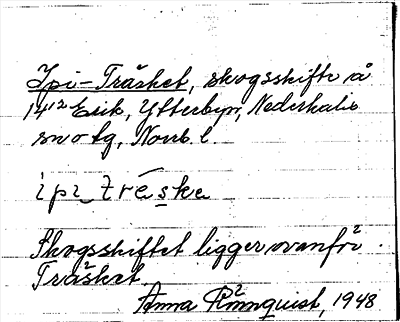 Ipi-Träsket, skogsskifte å
14¹² Erik, Ytterbyn, Nederkalix
sn o tg, Norrb. l.
ipi_träske
Skogsskiftet ligger ovanför
Träsket
Anna Rönnquist, 1948